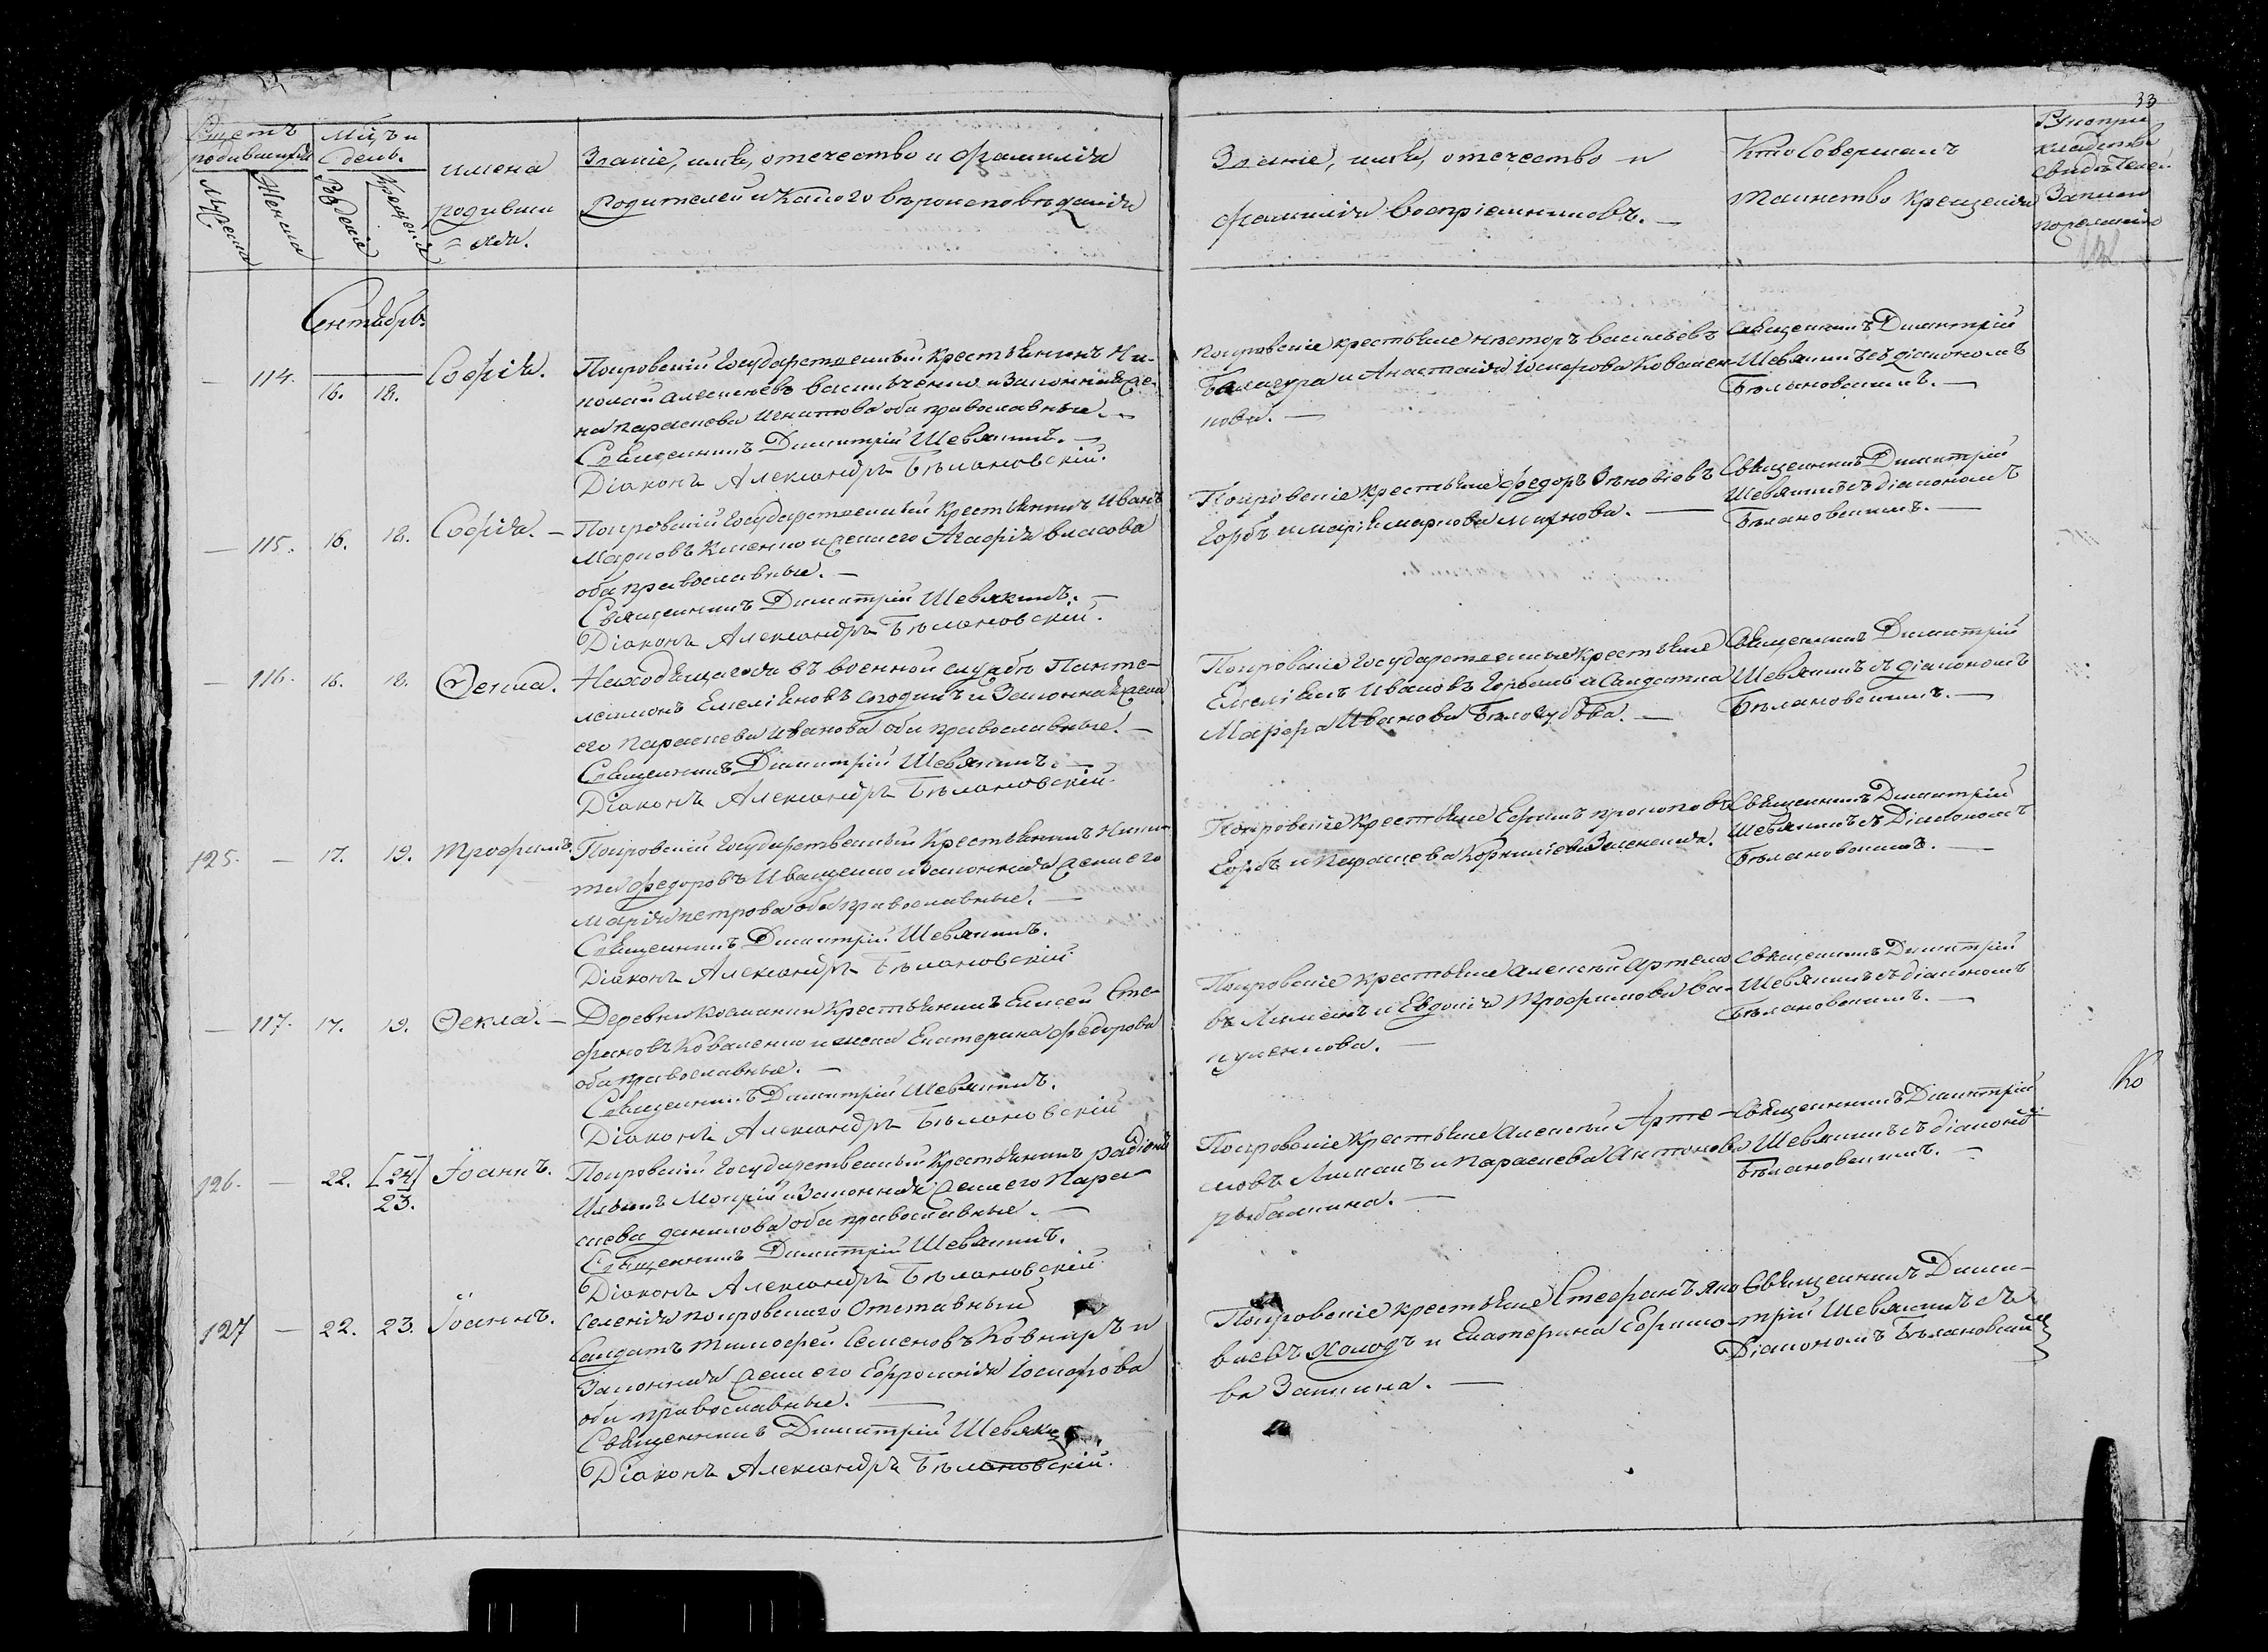 33
Щетъ
родившихся
Мѣц ъ и
день.
Мужеска
Женска
Рожденіе
Крещеніе
имена
родивши
= хся.
Званіе, имя, отечество и фамилія
Родителей и какого вѣроисповѣданія
Званіе, имя, отечество и
фамилія воспріемниковъ. —
Кто совершалъ
таинство крещенія
Рукопри
кладство
свидѣтелей
записи
по желанію
Сентябрь
— 114. 16. 18. Софія.
Покровскій государственный крестьянинъ Ни-
колай Алексѣевъ Васильченко и законная же-
на Параскева Игнатова оба православные. —
Священникъ Димитрій Шевякинъ. —
Діаконъ Александръ Бѣлановскій.
Покровскіе крестьяне Нѣсторъ Васильевъ
Балагура и Анастасія Іосифова Ковален-
кова. —
Священникъ Димитрій
Шевякинъ съ діакономъ
Бѣлановскимъ. —
— 115. 16. 18. Софія. —
Покровскій государственный крестьянинъ Иванъ
Марковъ Клѣенко и жена его Агафія Власова
оба православные. —
Священникъ Димитрій Шевякинъ. —
Діаконъ Александръ Бѣлановскій.
Покровскіе крестьяне Федоръ Зѣновіевъ
Горбъ и Марія Маркова —
Священникъ Димитрій
Шевякинъ съ діакономъ
Бѣлановскимъ. —
— 116. 16. 18. Ѳекла.
Находящагося въ военной службѣ Панте-
леимонъ Емеліяновъ и законная жена
его Параскева Иванова оба православные. —
Священникъ Димитрій Шевякинъ. —
Діаконъ Александръ Бѣлановскій.
Покровскіе государственные крестьяне
Емеліянъ Ивановъ и солдатка
Марфа Иванова Бѣлозубова. —
Священникъ Димитрій
Шевякинъ съ діакономъ
Бѣлановскимъ. —
125. — 17. 19. Трофимъ.
Покровскій государственный крестьянинъ Ники-
та Федоровъ Иващенко и законная жена его
Марія Петрова оба православные. —
Священникъ Димитрій Шевякинъ.
Діаконъ Александръ Бѣлановскій.
Покровскіе крестьяне Ефимъ Прокоповъ
Горбъ и Параскева Корниліева Зеленская.
Священникъ Димитрій
Шевякинъ съ Діакономъ
Бѣлановскимъ. —
— 117. 17. 19. Ѳекла. —
Деревни крестьянинъ Елисей Сте-
фановъ Коваленко и жена Екатерина Федорова
оба православные. —
Священникъ Димитрій Шевякинъ.
Діаконъ Александръ Бѣлановскій
Покровскіе крестьяне Алексѣй Артемо
въ Лиманъ и Евдокія Трофимова Ва-
куленкова. —
Священникъ Димитрій
Шевякинъ съ діакономъ
Бѣлановскимъ. —
126. — 22. [24] 23. Іоаннъ.
Покровскій государственный крестьянинъ Радіонъ
Ильинъ Мокрій и законная жена его Пара-
скева Данилова оба православные. —
Священникъ Димитрій Шевякинъ.
Діаконъ Александръ Бѣлановскій.
Покровскіе крестьяне Алексѣй Арте-
мовъ Лиманъ и Параскева Антонова
рыбалкина. —
Священникъ Димитрій
Шевякинъ съ діакономъ
Бѣлановскимъ. —
127 — 22. 23. Іоаннъ.
Селенія Покровскаго Отставный
Солдатъ Тимофей Семеновъ Ковниръ и
законная жена его Ефросинія Іосифова
оба православные. —
Священникъ Димитрій Шевякинъ
Діаконъ Александръ Бѣлановскій.
Покровскіе крестьяне Стефанъ Яко
влевъ Холодъ и Екатерина Ефимо-
ва Заикина. —
Священникъ Дими-
трій Шевякинъ съ
Діакономъ Бѣлановскимъ